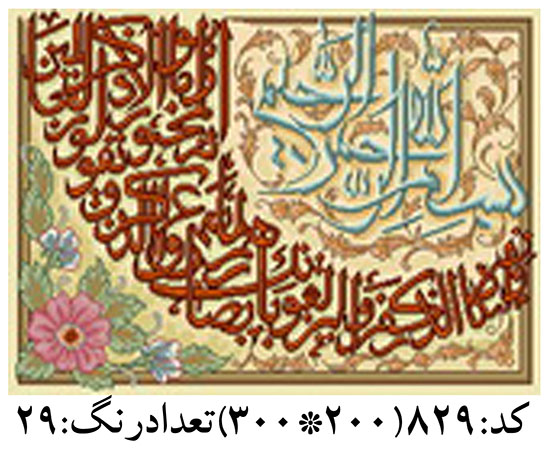 بسم الله الرحمن الرحیم
وان یکاد الذین کفروا لیزلقونک بابصارهم لما سمعوا الذکر ویقولون انه لمجنون وما هو الا ذکر للعالمین
کد:۸۲۹(۲۰۰*۳۰۰)تعدادرنگ:۲۹